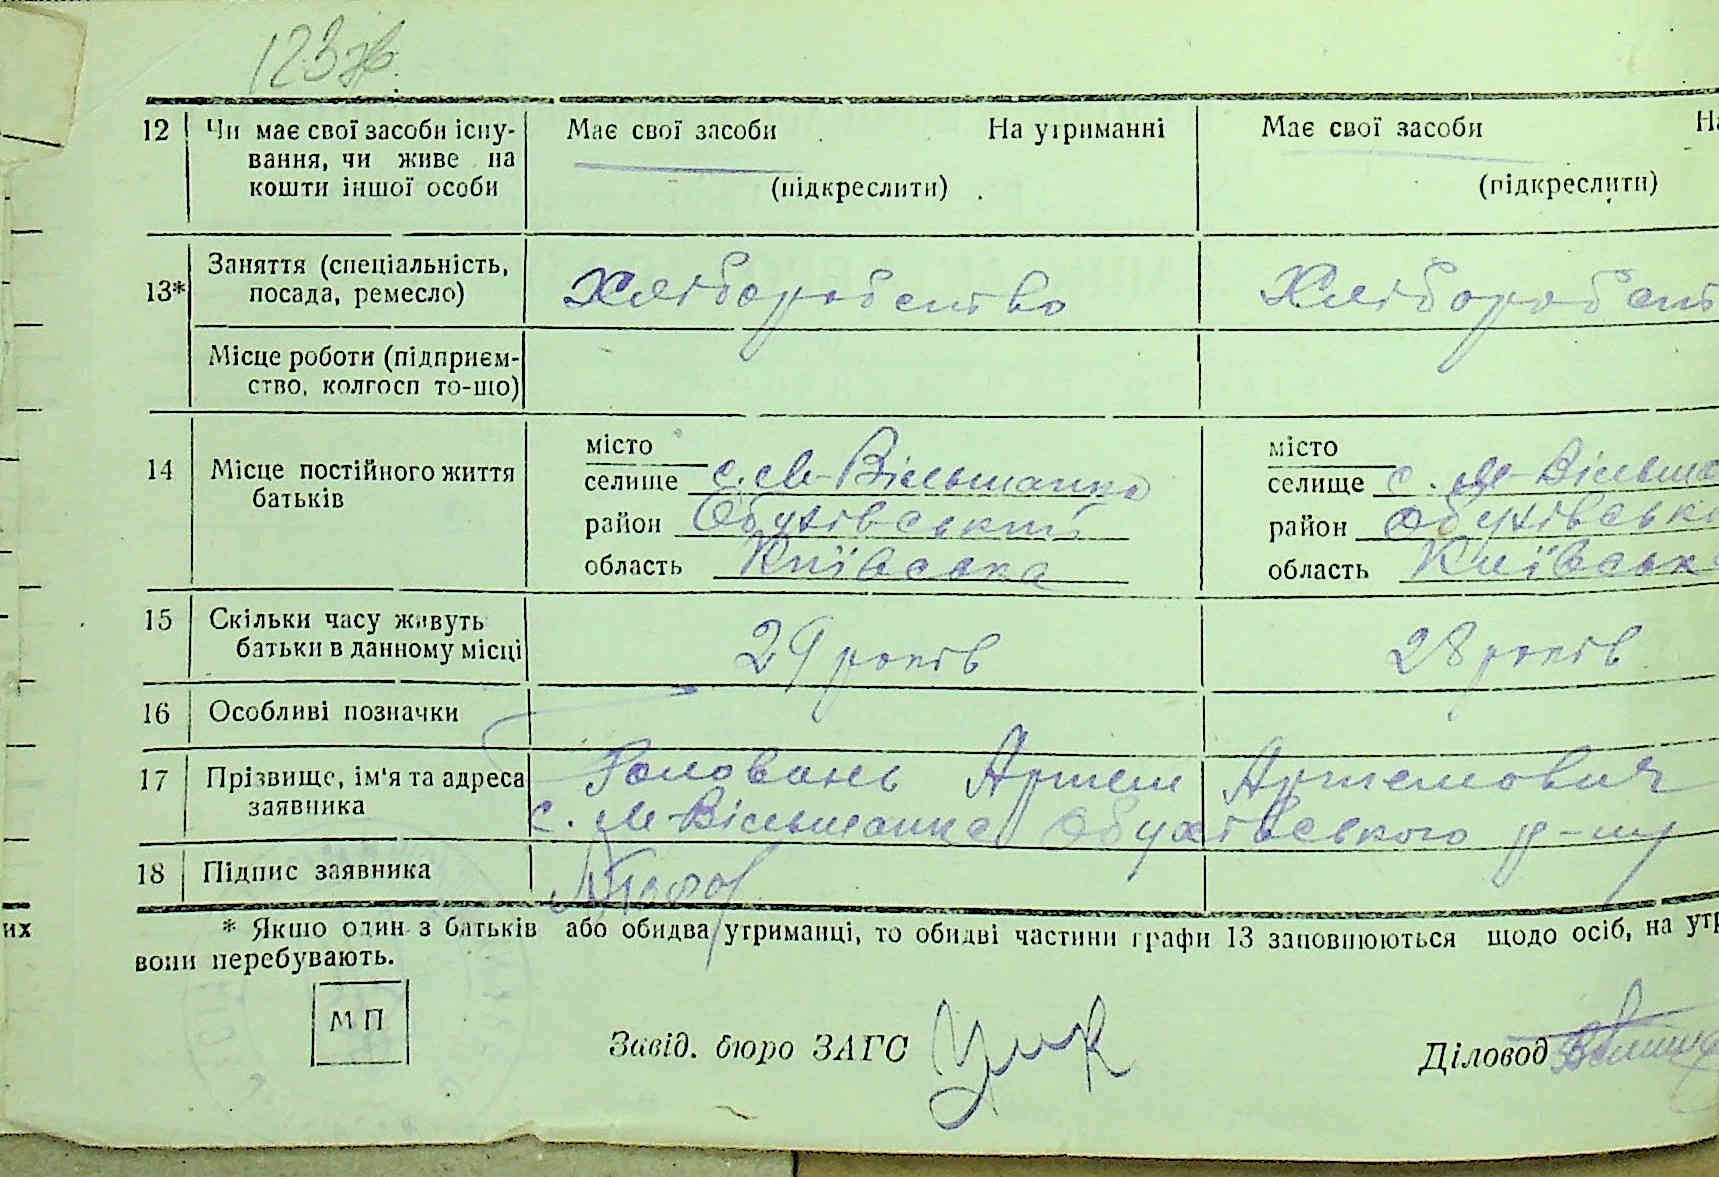 123 зв.
12 Чи має свої засоби існу- Має свої засоби На утриманні Має свої засоби На
вання, чи живе на
кошти іншої особи (підкреслити) (підкреслити)
13* Заняття (спеціальність, Хліборобство Хліборобст
посада, ремесло)
Місце роботи (підприєм-
ство, колгосп то-що)
14 Місце постійного життя батьків
місто місто
селище с. М-Вільшанка селище с. М-Вільша
район Обухівський район Обухівськ
область Київська область Київськ
15 Скільки часу живуть 29 років 28 років
батьки в данному місці
16 Особливі позначки
17 Прізвище, ім'я та адреса Головань Артем Артемович
заявника с. М-Вільшанка Обухівського р-ну
18 Підпис заявника
их
* Якщо один з батьків або обидва утриманці, то обидві частини графи 13 заповнюються щодо осіб, на утр
вони перебувають.
МП
Завід. бюро ЗАГС Діловод